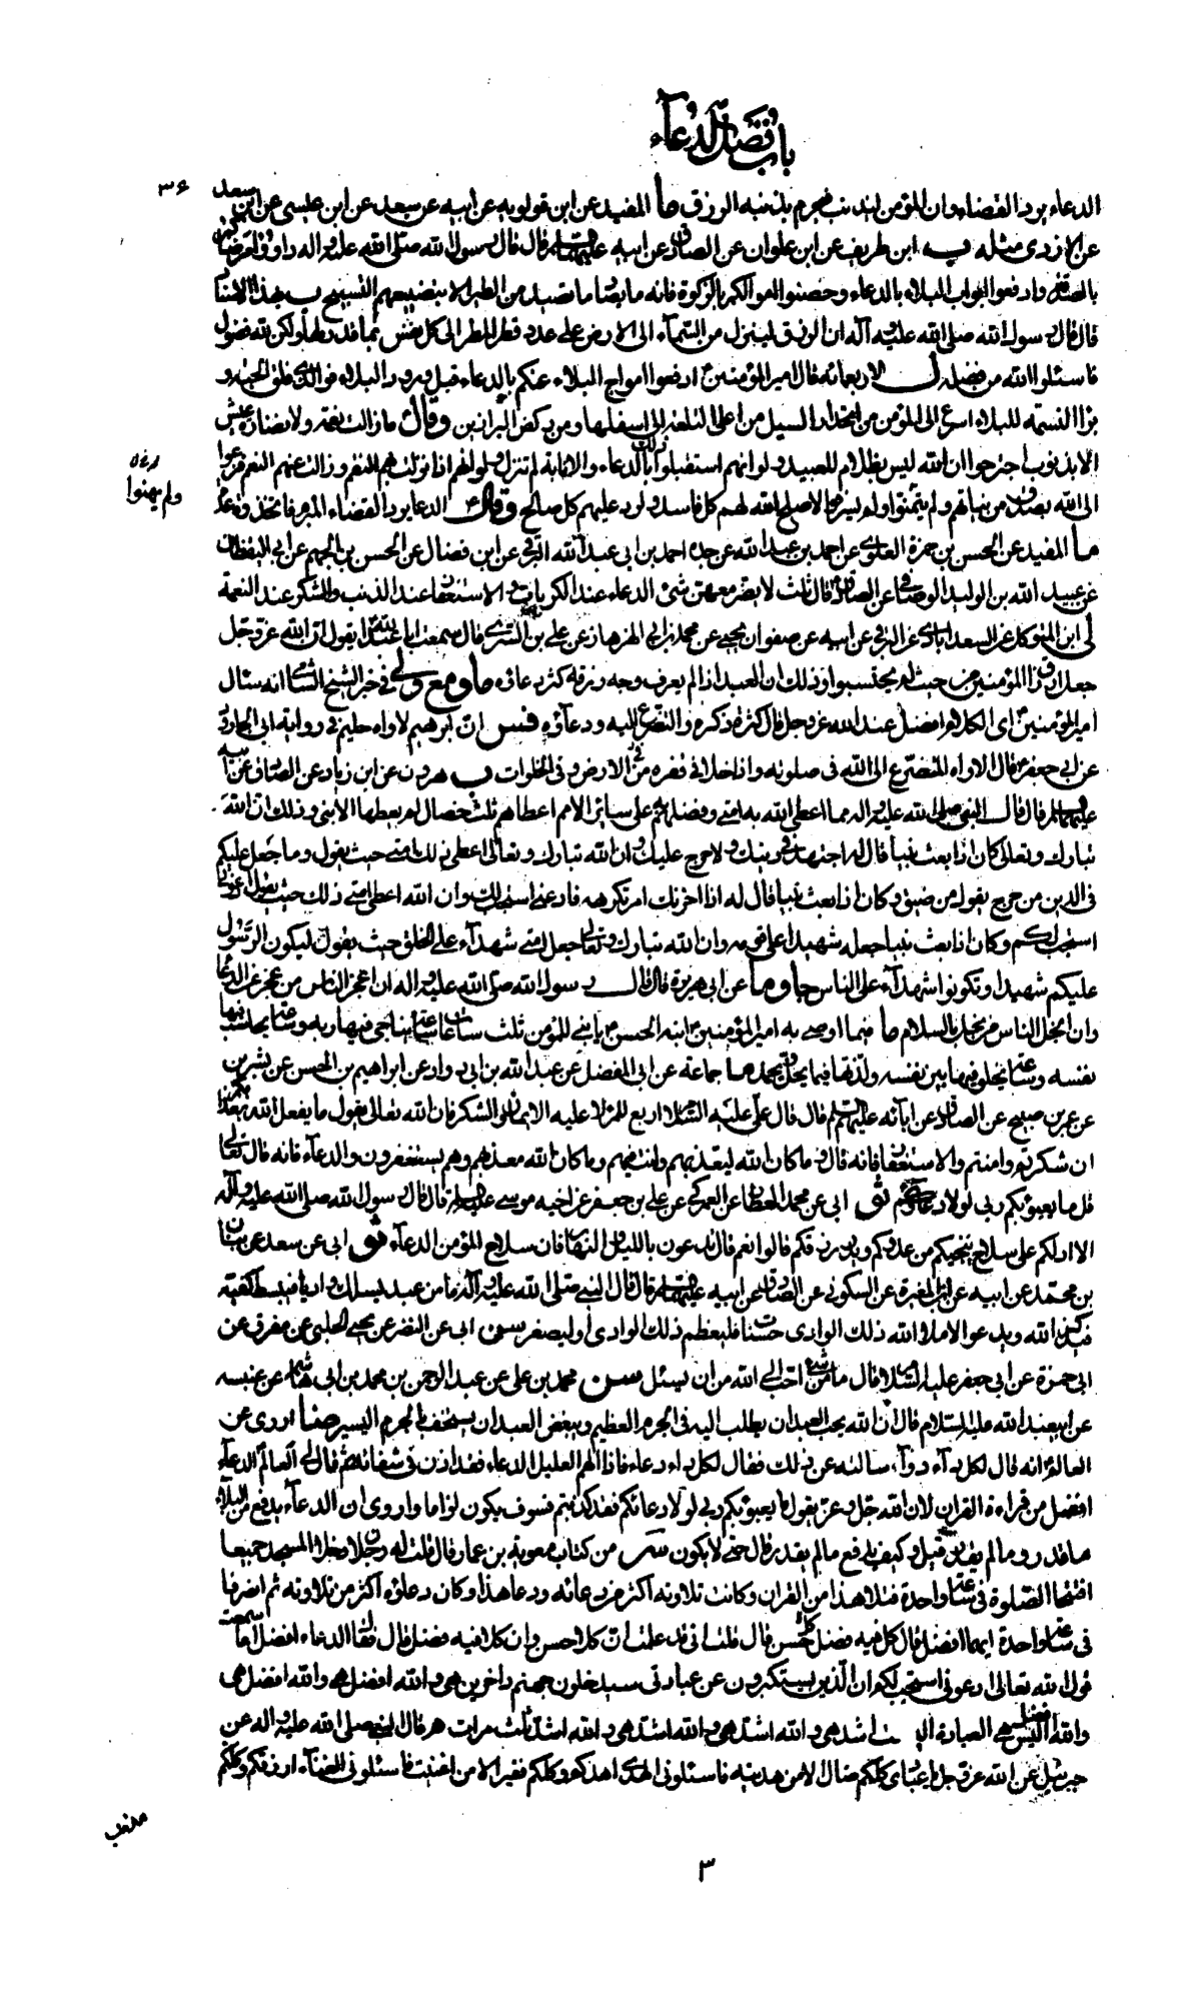 باب فضل الدعاء
٣۶
الدعاء يرد القضاء وان المؤمن ليذنب فيحرم بذنبه الرزق ما المفيد عن ابن قولويه عن ابيه عن سعد عن ابن عيسى عن ابن سعيد
عن الازدى مثله ب ابن طريف عن ابن علوان عن الصادق عن ابيه عليهما قال قال رسول الله صلى الله عليه واله داووا مرضاكم
بالصدقة وادفعوا ابواب البلاء بالدعاء وحصنوا اموالكم بالزكوة فانه ما يصاد ما تصيد من الطير الا بتضييعهم التسبيح ب بهذا الاسناد
قال قال رسول الله صلى الله عليه واله ان الرزق لينزل من السماء الى الارض على عدد قطر المطر الى كل نفس بما قدر لها ولكن لله فضول
فاسئلوا الله من فضله ل الاربعمائة قال امير المؤمنين ادفعوا امواج البلاء عنكم بالدعاء قبل ورود البلاء فوالذى فلق الحبة و
برا النسمة للبلاء اسرع الى المؤمن من انحدار السيل من اعلى التلعة الى اسفلها ومن ركض البراذين وقال ما زالت نعمة ولا نضارة عيش
الا بذنوب اجترحوا ان الله ليس بظلام للعبيد ولو انهم استقبلوا ذلك بالدعاء والانابة لم تنزل ولو انهم اذا نزلت بهم النقم وزالت عنهم النعم فزعوا
ولم يهنوا
الى الله بصدق من نياتهم ولم يتمنوا ولم يسرفوا لاصلح الله لهم كل فاسد ولرد عليهم كل صالح وقال الدعا يرد القضاء المبرم فاتخذوه عدة
ما المفيد عن الحسن بن حمزة العلوى عن احمد بن عبد الله عن جده احمد بن ابى عبد الله البرقى عن ابن فضال عن الحسن بن الجهم عن ابى اليقظان
عن عبيد الله بن الوليد الوصافى عن الصادق قال ثلث لا يضر معهن شئ الدعاء عند الكربات والاستغفار عند الذنب والشكر عند النعمة
لى ابن المتوكل عن السعدابادى عن البرقى عن ابيه عن صفوان بن يحيى عن محمد بن ابى الهزهاز عن على بن السرى قال سمعت ابا عبد الله يقول ان الله عز وجل
جعل ارزاق المؤمنين من حيث لم يحتسبوا وذلك ان العبد اذا لم يعرف وجه رزقه كثر دعاؤه ما ومع ولى فى خبر الشيخ الشامى انه سئال
امير المؤمنين اى الكلام افضل عند الله عز وجل قال كثرة ذكره والتضرع اليه ودعاؤه فس ان ابرهيم لاواه حليم فى رواية ابى الجارود
عن ابى جعفر قال الاواه المتضرع الى الله فى صلوته واذا خلا فى قفره من الارض وفى الخلوات ب هرون عن ابن زياد عن الصادق عن ابيه
قال قال النبى صلى الله عليه واله مما اعطى الله به امتى وفضلهم على سائر الامم اعطاهم ثلث خصال لم يعطها الا نبى وذلك ان الله
تبارك وتعالى كان اذا بعث نبيا قال له اجتهد فى دينك ولا حرج عليك وان الله تبارك وتعالى اعطى ذلك امتى حيث يقول وما جعل عليكم
فى الدين من حرج يقول من ضيق وكان اذا بعث نبيا قال له اذا احزنك امر تكرهه فادعنى استجب لك وان الله اعطى امتى ذلك حيث يقول ادعونى
استجب لكم وكان اذا بعث نبيا جعله شهيدا على قومه وان الله تبارك وتعالى جعل امتى شهداء على الخلق حيث يقول ليكون الرسول
عليكم شهيدا وتكونوا شهداء على الناس جا وما عن ابى هريرة قال قال رسول الله صلى الله عليه واله ان اعجز الناس من عجز عن الدعا
وان ابخل الناس من بخل بالسلام ما فيما اوصى به امير المؤمنين ابنه الحسن يا بنى للمؤمن ثلث ساعات ساعة يناجى فيها ربه وساعة يحاسب فيها
نفسه وساعة يخلو فيها بين نفسه ولذتها فيما يحل ويحمد ما جماعة عن ابى المفضل عن عبد الله بن ابى داود عن ابراهيم بن الحسن عن بشر بن
عن عمر بن صبيح عن الصادق عن ابائه عليهم قال قال على عليه السلام اربع للمرء لا عليه الايمان والشكر فان الله تعالى يقول ما يفعل الله بعذابكم
ان شكرتم وامنتم والاستغفار فانه قال وما كان الله ليعذبهم وانت فيهم وما كان الله معذبهم وهم يستغفرون والدعاء فانه قال تعالى
قل ما يعبؤ بكم ربى لولا دعاؤكم ثو ابى عن محمد العطار عن العمركى عن على بن جعفر عن اخيه موسى قال قال رسول الله صلى الله عليه واله
الا ادلكم على سلاح ينجيكم من عدوكم ويدر رزقكم قالوا نعم قال تدعون بالليل والنهار فان سلاح المؤمن الدعاء ثو ابى عن سعد عن بنان
بن محمد عن ابيه عن ابن المغيرة عن السكونى عن الصادق عن ابيه قال قال النبى صلى الله عليه واله ما من عبد يسلك واديا فيبسط كفيه
فيذكر الله ويدعو الا ملأ الله ذلك الوادى حسنات فليعظم ذلك الوادى أو ليصغر سن ابى عن النضر عن يحيى الحلبى عن مفرق عن
ابى حمزة عن ابى جعفر عليه السلام قال ما من شئ احب الى الله من ان يسئل سن محمد بن على عن عبد الرحمن بن محمد بن ابى هاشم عن عنبسه
عن ابى عبد الله عليه السلام قال ان الله يحب العبد ان يطلب اليه فى الجرم العظيم ويبغض العبد ان يستخف بالجرم اليسير ضا اروى عن
العالم انه قال لكل داء دواء سالته عن ذلك فقال لكل داء دعاء فاذا الهم العليل الدعاء فقد اذن فى شفائه ثم قال لى العالم الدعاء
افضل من قراءة القران لان الله جل وعز يقول ما يعبؤ بكم ربى لولا دعائكم فقد كذبتم فسوف يكون لزاما واروى ان الدعاء يدفع من البلاء
ما قدر وما لم يقدر قيل وكيف يدفع ما لم يقدر قال حتى لا يكون سر من كتاب معوية بن عمار قال قلت له رجلان دخلا المسجد جميعا
افتتحا الصلوة فى ساعة واحدة فتلا هذا من القران وكانت تلاوته اكثر من دعائه ودعا هذا وكان دعاؤه اكثر من تلاوته ثم انصرفا
فى ساعة واحدة ايهما افضل قال كل فيه فضل كل حسن قال قلت انى قد علمت ان كلا حسن وان كلا فيه فضل قال فقال الدعاء افضل اما سمعت
قول الله تعالى ادعونى استجب لكم ان الذين يستكبرون عن عبادتى سيدخلون جهنم داخرين هى والله افضل هى والله افضل هى
والله افضل اليس هى العبادة اشد هى والله اشد هى والله اشد هى والله اشد ثلث مرات هر قال النبى صلى الله عليه واله عن
جبرئيل عن الله عز وجل يا عبادى كلكم ضال الا من هديته فاسئلونى الهدى اهدكم وكلكم فقير الا من اغنيت فاسئلونى الغناء ارزقكم وكلكم
مذنب
٣